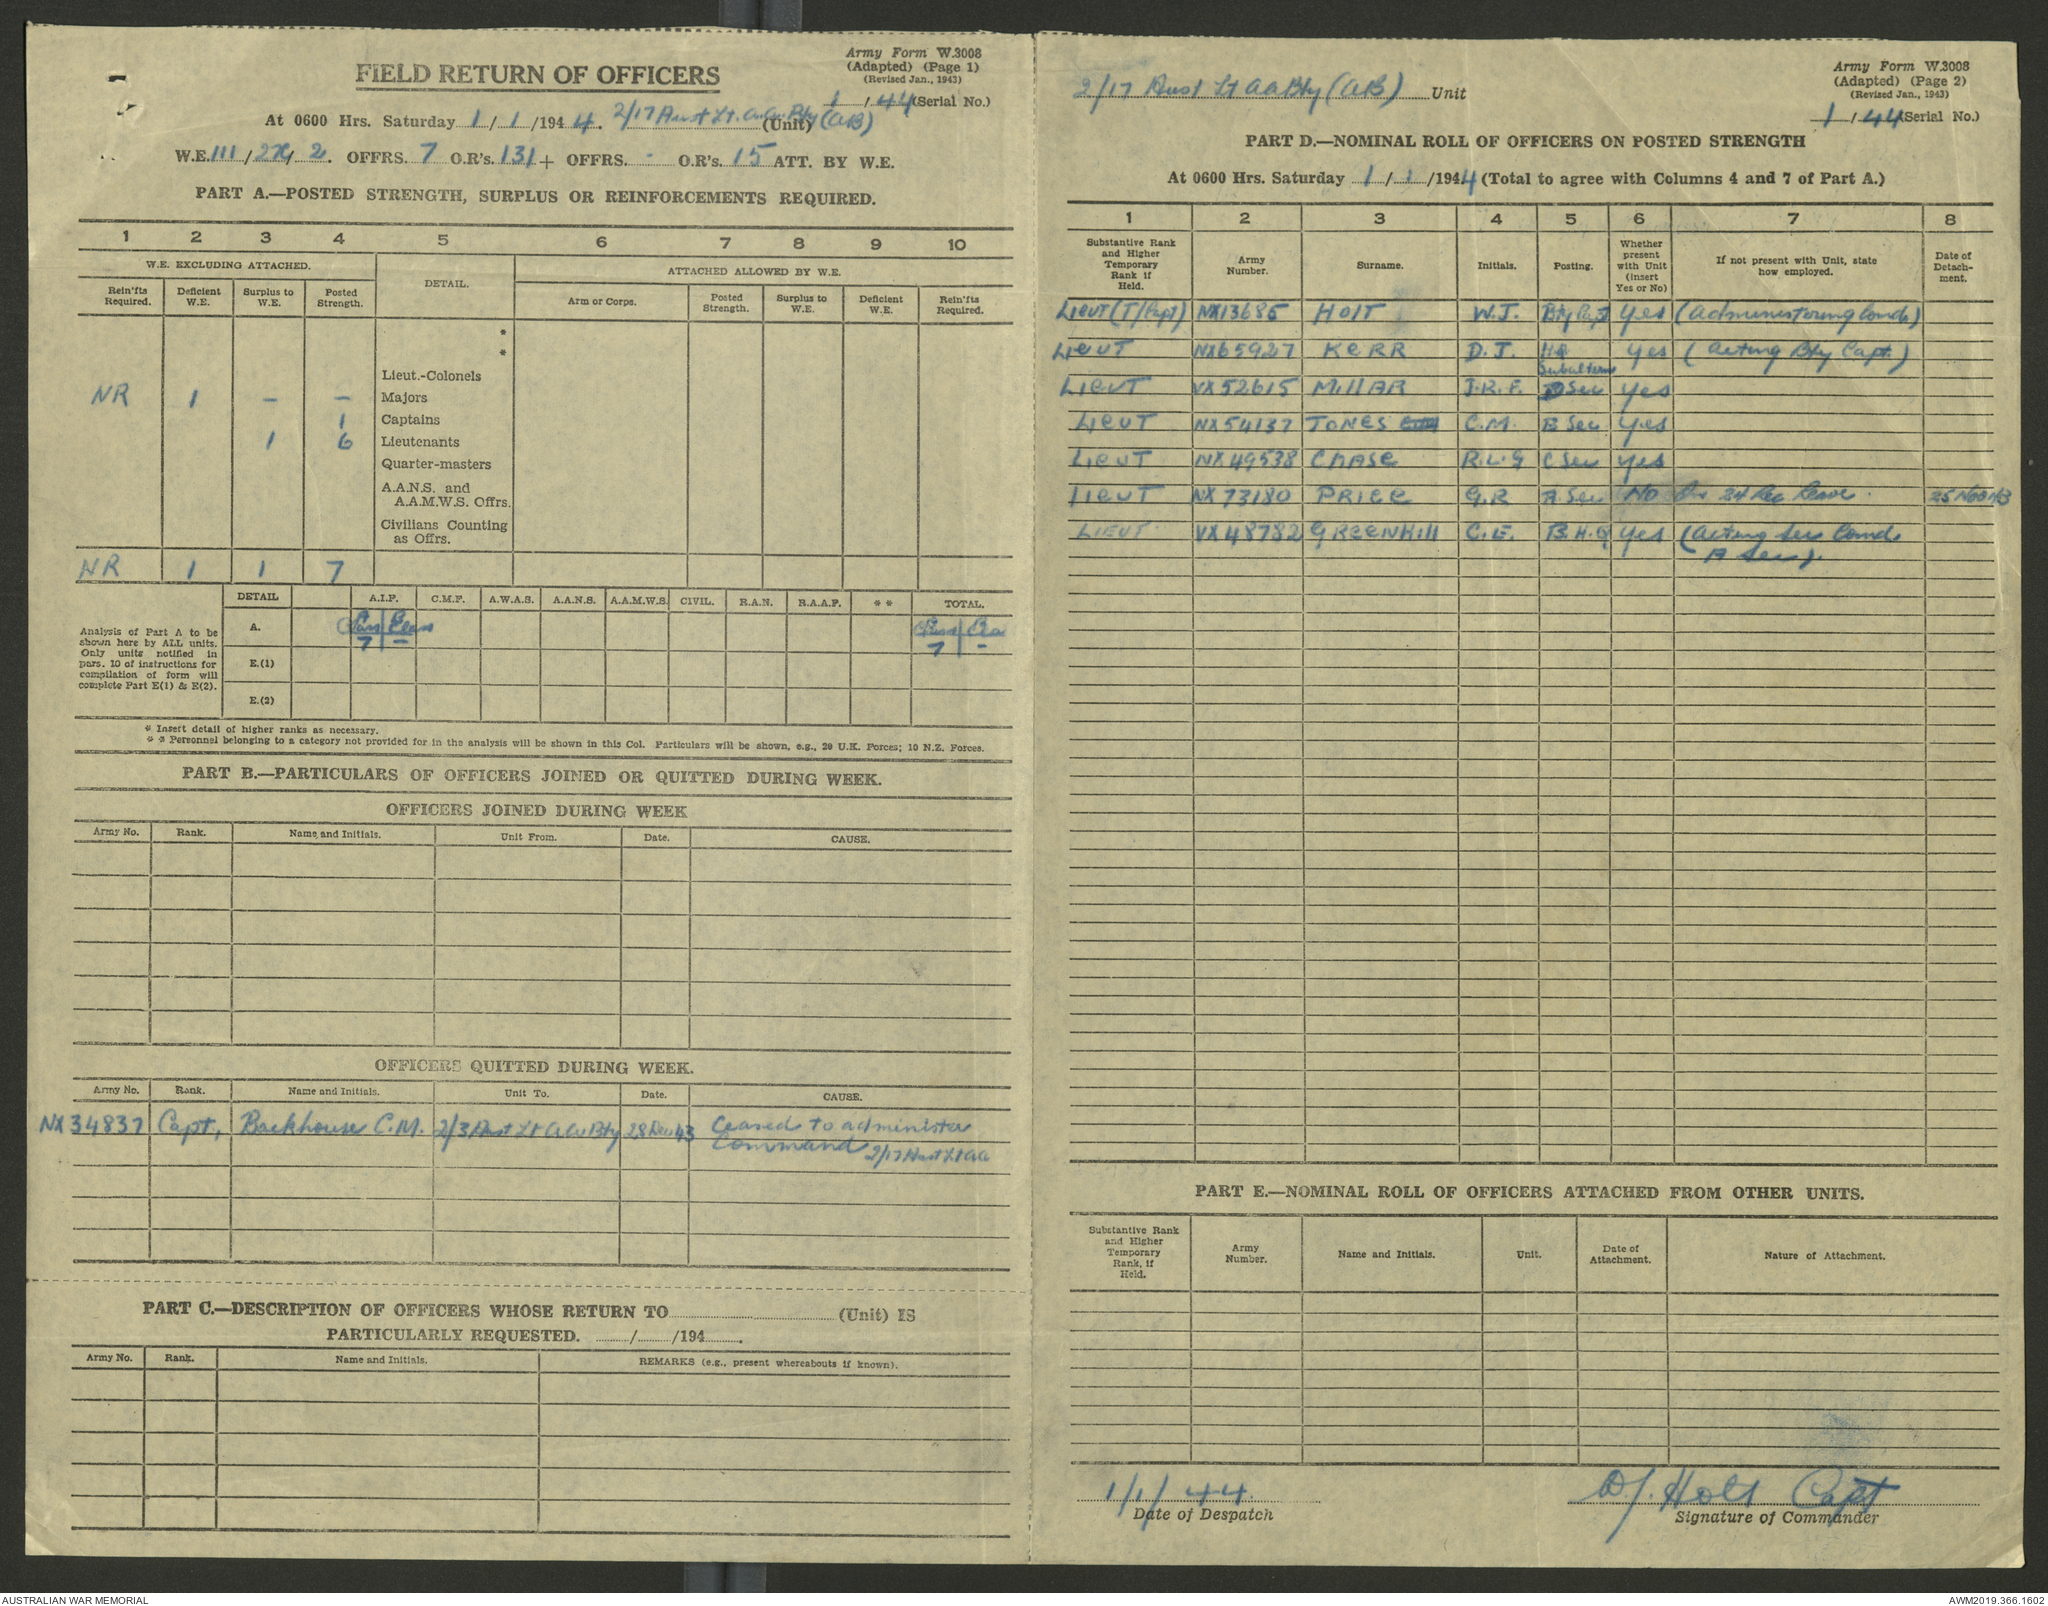 FIELD RETURN OF OFFICERS
Army Form W.3008
(Adapted) (Page 1)
(Revised Jan., 1943)
1 / 44 (Serial No.)
At 0600 Hrs. Saturday 1 / 1 / 1944. 2/17 Aust Lt. A.A. Bty (AB) (Unit)
W.E. III / 2 OFFRS. 7 O.R's. 131 + OFFRS. - O.R's. 15 ATT. BY W.E.
PART A.—POSTED STRENGTH, SURPLUS OR REINFORCEMENTS REQUIRED.
1 2 3 4 5 6 7 8 9 10
W.E. EXCLUDING ATTACHED. DETAIL. ATTACHED ALLOWED BY W.E.
Rein'fts Required. Deficient W.E. Surplus to W.E. Posted Strength. Arm or Corps. Posted Strength. Surplus to W.E. Deficient W.E. Rein'fts Required.
*
*
Lieut.-Colonels
NR 1 - - Majors
1 Captains
1 6 Lieutenants
Quarter-masters
A.A.N.S. and
A.A.M.W.S. Offrs.
Civilians Counting
as Offrs.
NR 1 1 7
Analysis of Part A to be shown here by ALL units. Only units notified in pars. 10 of instructions for compilation of form will complete Part E(1) & E(2).
DETAIL A.I.F. C.M.F. A.W.A.S. A.A.N.S. A.A.M.W.S. CIVIL. R.A.N. R.A.A.F. * * TOTAL.
A.
7 - 7 -
E.(1)
E.(2)
* Insert detail of higher ranks as necessary.
* * Personnel belonging to a category not provided for in the analysis will be shown in this Col. Particulars will be shown, e.g., 29 U.K. Forces; 10 N.Z. Forces.
PART B.—PARTICULARS OF OFFICERS JOINED OR QUITTED DURING WEEK.
OFFICERS JOINED DURING WEEK
Army No. Rank. Name and Initials. Unit From. Date. CAUSE.
OFFICERS QUITTED DURING WEEK.
Army No. Rank. Name and Initials. Unit To. Date. CAUSE.
NX34837 Capt, Backhouse C.M. 2/3 Aust Lt AA Bty 28 Dec 43 Ceased to administer
Command 2/17 Aust Lt AA
PART C.—DESCRIPTION OF OFFICERS WHOSE RETURN TO (Unit) IS
PARTICULARLY REQUESTED. / /194 .
Army No. Rank. Name and Initials. REMARKS (e.g., present whereabouts if known).
2/17 Aust Lt AA Bty (AB) Unit
Army Form W.3008
(Adapted) (Page 2)
(Revised Jan., 1943)
1 / 44 (Serial No.)
PART D.—NOMINAL ROLL OF OFFICERS ON POSTED STRENGTH
At 0600 Hrs. Saturday 1 / 1 / 1944 (Total to agree with Columns 4 and 7 of Part A.)
1 2 3 4 5 6 7 8
Substantive Rank and Higher Temporary Rank if Held. Army Number. Surname. Initials. Posting. Whether present with Unit (insert Yes or No) If not present with Unit, state how employed. Date of Detach-ment.
Lieut (T/Capt) NX13685 HOLT W.J. Bty Capt Yes (Administering Comd)
Lieut NX65927 KERR D.J. HQ Subaltern Yes (Acting Bty Capt.)
Lieut VX52615 MILLAR J.R.F. D Sec Yes
Lieut NX54137 JONES C.M. B Sec Yes
Lieut NX49538 CHASE R.L.G C Sec Yes
Lieut NX73180 PRICE G.R A. Sec No On 24 Rec Leave. 25 Nov 43
LIEUT VX48782 GREENHILL C.E. B.H.Q Yes (Acting Sec Comd
A Sec).
PART E.—NOMINAL ROLL OF OFFICERS ATTACHED FROM OTHER UNITS.
Substantive Rank and Higher Temporary Rank, if Held. Army Number. Name and Initials. Unit. Date of Attachment. Nature of Attachment.
1/1/44. WJ. Holt Capt
Date of Despatch Signature of Commander
AUSTRALIAN WAR MEMORIAL AWM2019.366.1602